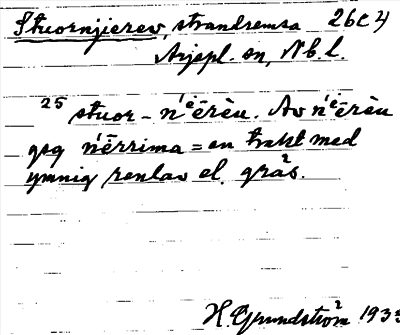 Stuornjierev, strandremsa 26c4
Arjepl. sn, Nb.l.
25 stuor - n'ē̇rēu. Av n'ē̇rēu
gsg n'ērrima = en trakt med
ymnig renlav el. gräs.
H. Grundström 1933